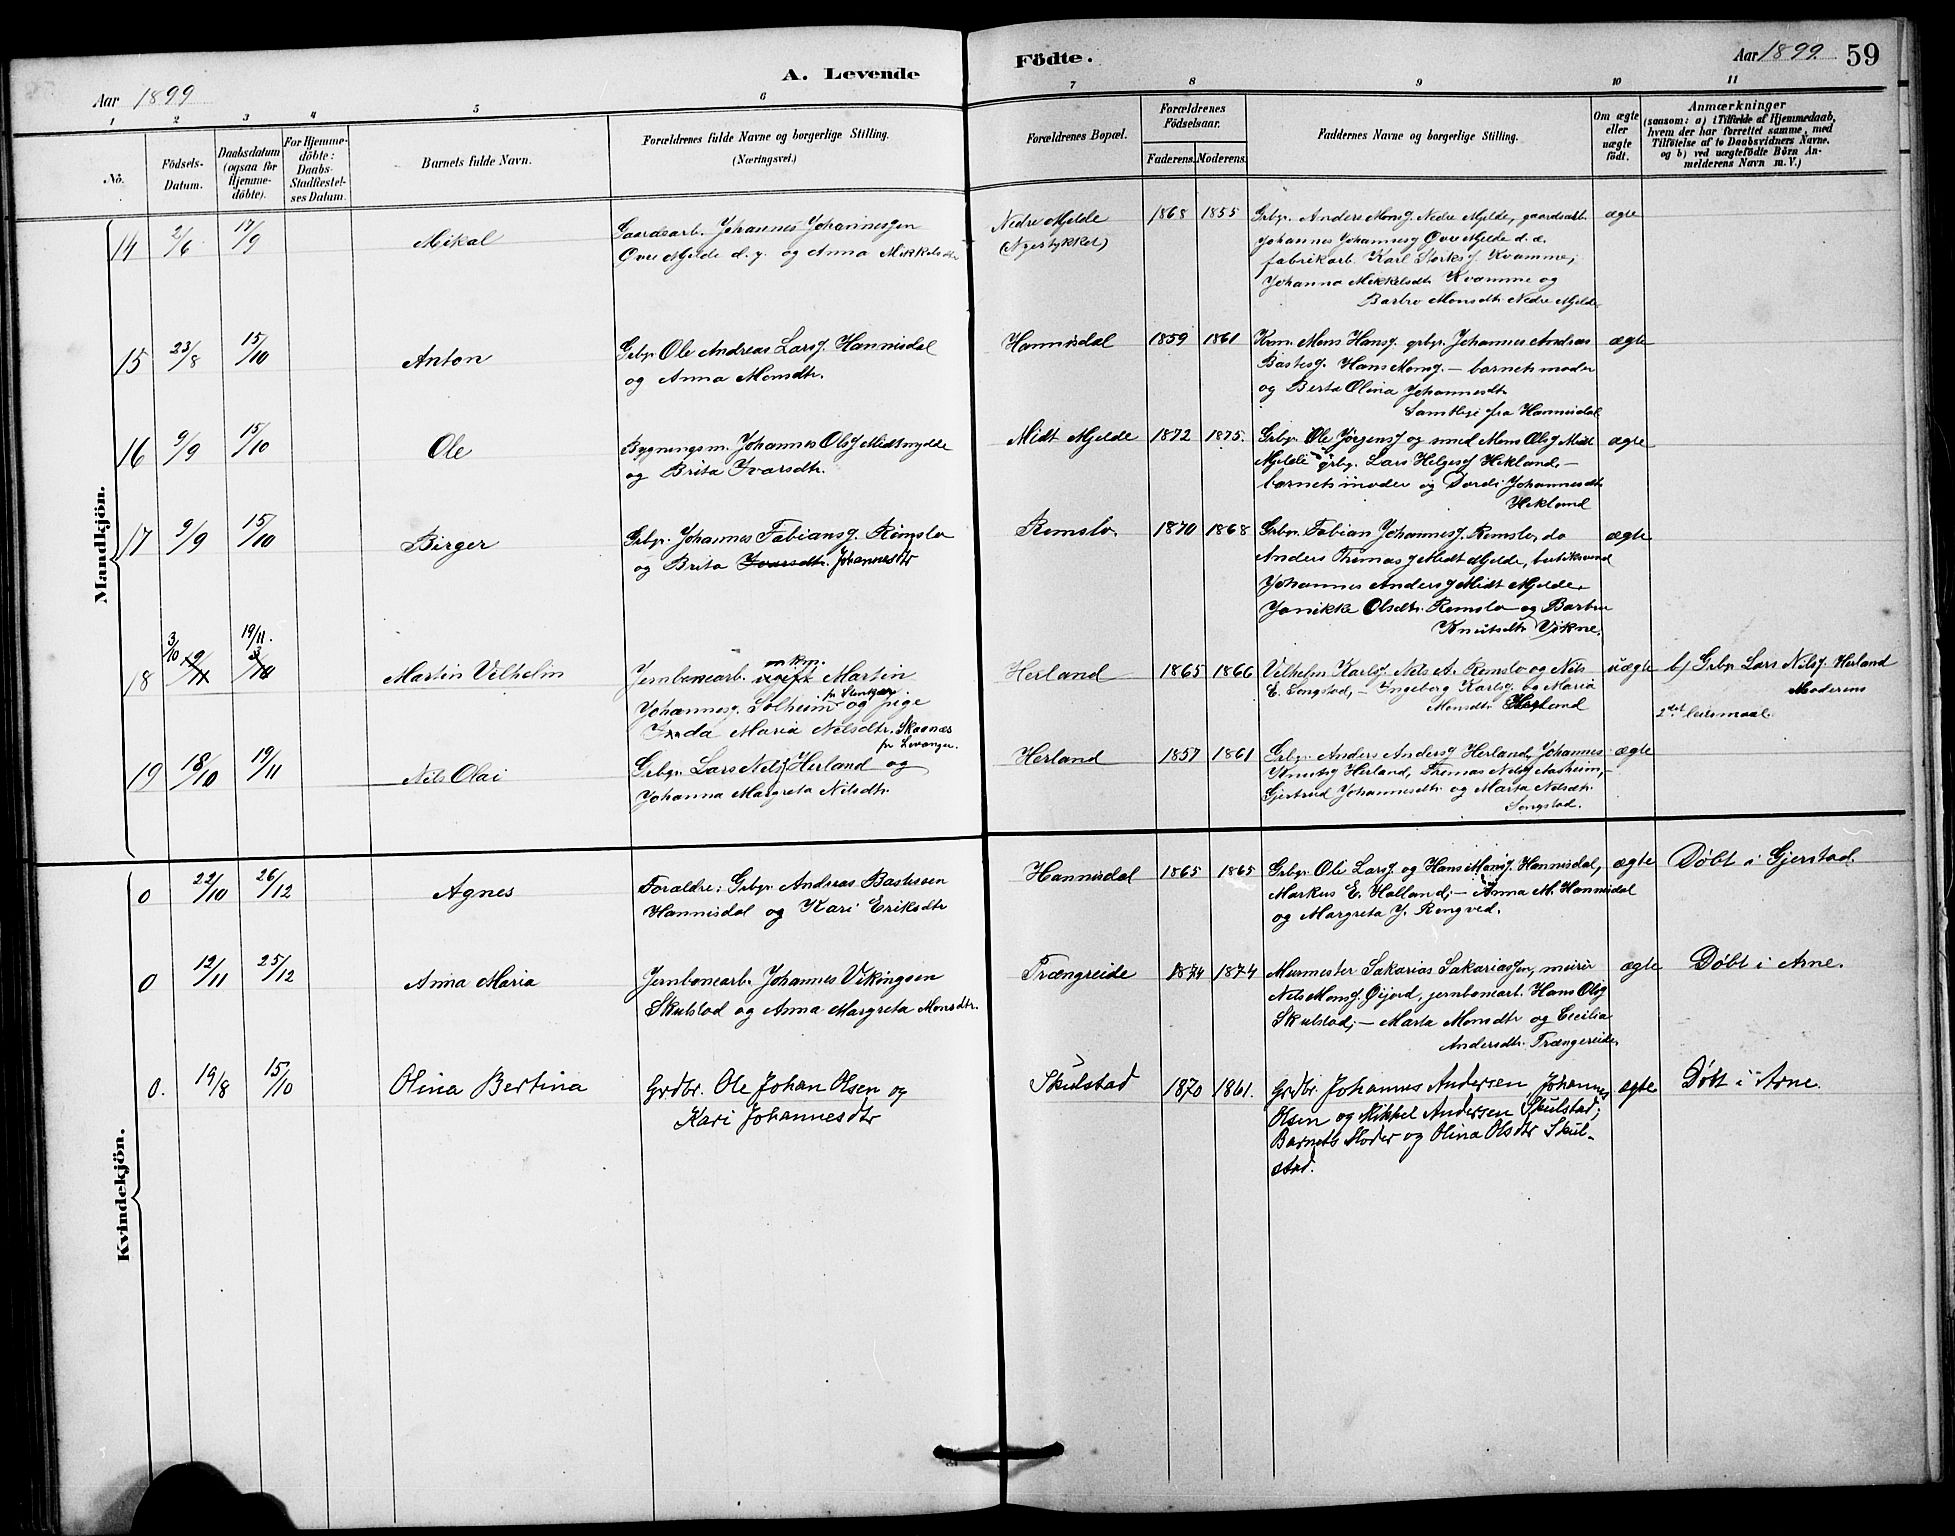 A. Levende
Födte.
Aar 1899.
59
Aar 1899
1 2 3 4 5 6 7 8 9 10 11
Nö.
Födsels-
Datum.
Daabsdatum
(ogsaa for
Hjemme-
döbte).
For Hjemme-
döbte:
Daabs-
Stadfæstel-
ses Datum.
Barnets fulde Navn.
Forældrenes fulde Navne og borgerlige Stilling.
(Næringsvei.)
Forældrenes Bopæl.
Forældrenes
Födselsaar.
Faderens. Moderens.
Faddernes Navne og borgerlige Stilling.
Om ægte
eller
uægte
födt.
Anmærkninger
(saasom: a) i Tilfælde af Hjemmedaab,
hvem der har forrettet samme, med
Tilföielse af to Daabsvidners Navne,
og b) ved uægtefödte Börn An-
melderens Navn m. V.)
Mandkjön.
14 2/6 17/9 Mikal
Gaardearb. Johannes Johannessen
Øvre Mjelde d. y. og Anna Mikkelsdtr
Nedre Mjelde
(Nyestykket)
1868 1855
Grbgr. Anders Monss. Nedre Mjelde, gaardsarb.
Johannes Johanness Øvre Mjelde d. æ.
fabrikarb. Karl Storks. Kvamme,
Johanna Mikkelsdt Kvamme og
Barbro Monsdtr Nedre Mjelde
ægte
15 23/8 15/10 Anton
Grbgr Ole Andreas Larss. Hannisdal
og Anna Monsdtr.
Hannisdal 1859 1861
Mons Hanss. grbgr. Johannes Andreas
Bastess. Hans Monss. — barnets moder
og Berta Olina Johannesdtr
Samtlige fra Hannisdal
ægte
16 9/9 15/10 Ole
Bygningsm. Johannes Olss Midtmjelde
og Brita Ivarsdtr.
Midt Mjelde 1872 1875.
Grbgr. Ole Jörgenss og smed Mons Olss Midt
Mjelde grbgr. Lars Helgess Hekland, —
barnets moder og Dordi Johannesdtr
Hekland
ægte
17 9/9 15/10 Birger
Grbgr. Johannes Fabianss. Romslo
og Brita Ivarsdtr. Johannesdtr
Romslo. 1870 1868
Grbgr. Fabian Johanness. Romslo, do
Anders Thomass Midt Mjelde, butiksvend
Johannes Anderss Midt Mjelde.
Janikke Olsdtr. Romslo og Barbro
Knutsdtr Vikne.
ægte
18 3/10 19/11. 3/10 Martin Vilhelm
Jernbanearb. Martin
Johanness. Solheim og pige
Maria Nilsdtr. Skaanæs
fr Levanger.
Herland 1865 1866
Vilhelm Karlss Nels A. Romslo og Nils
E. Songstad, — Ingeborg Karlss. og Maria
Monsdtr Herland
uægte
b) Grbgr Lars Nilss. Herland
Moderens
2det leiermaal.
19 18/10 19/11 Nils Olai
Grbgr. Lars Nelss Herland og
Johanna Margreta Nilsdtr.
Herland 1857 1861
Grbgr. Anders Anderss Herland, Johannes
Knutss Herland, Thomas Nelss Aasheim, —
Gjertrud Johannesdtr og Marta Nelsdtr.
Songstad.
ægte
Kvindekjön.
0 22/10 26/12 Agnes
Forældre: Grbgr. Andreas Bastesen
Hannisdal og Kari Eriksdtr
Hannisdal 1865 1865
Grbgr. Ole Larss. og Hans Monss. Hannisdal,
Markus E. Holland; — Anna M. Hannisdal
og Margreta J. Rengved.
ægte
Døbt i Gjerstad.
0 12/11 25/12 Anna Maria
Jernbanearb. Johannes Vikingsen
Skulstad og Anna Margreta Monsdtr.
Trængreide 1874 1874
Murmester Sakarias Sakariassen, murer
Nels Monss. Øijord, jernbanearb. Hans Olss
Skulstad; — Marta Monsdtr og Cecilia
Andersdtr. Trængereide.
ægte
Døbt i Arne.
0. 19/8 15/10 Olina Bertina
Grdbr. Ole Johan Olsen og
Kari Johannesdtr
Skulstad 1870 1861.
Grdbr. Johannes Andersen Johannes
Olsen og Mikkel Andersen Skulstad;
Barnets Moder og Olina Olsdtr Skul-
stad.
ægte
Døbt i Arne.